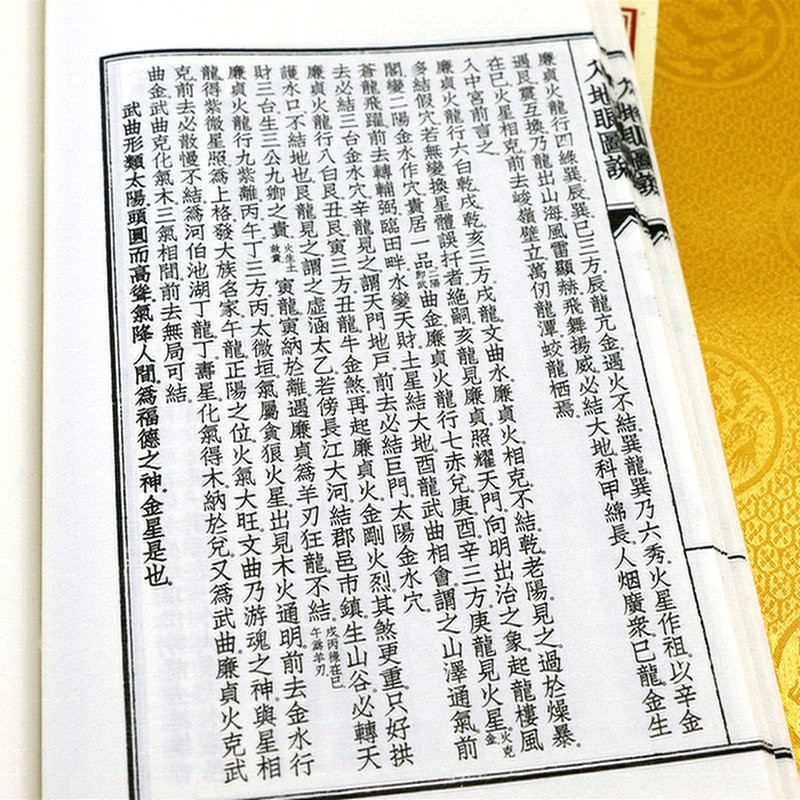 入地眼圖說
廉貞火龍行四綠巽辰巽巳三方辰龍亢金遇火不結巽龍巽乃六秀火星作祖以辛金
遇艮震互換乃龍出山海風雷顯赫飛舞揚威必結大地科甲綿長人烟廣衆巳龍金生
在巳火星相克前去峻嶺壁立萬仞龍潭蛟龍栖焉
入中宮前言之
廉貞火龍行六白乾戌乾亥三方戌龍文曲水廉貞火相克不結乾老陽見之過於燥暴
多結假穴若無變換星體誤扞者絶嗣亥龍見廉貞照耀天門向明出治之象起龍樓風
閣變二陽金水作穴貴居一品二陽即武曲金廉貞火龍行七赤兌庚酉辛三方庚龍見火星火克金
蒼龍飛躍前去轉輔弼臨田畔水變天財土星結大地酉龍武曲相會謂之山澤通氣前
去必結三台金水穴辛龍見之謂天門地戸前去必結巨門太陽金水穴
廉貞火龍行八白艮丑艮寅三方丑龍牛金煞再起廉貞火金剛火烈其煞更重只好拱
護水口不結地也艮龍見之謂之虛涵太乙若傍長江大河結郡邑市鎮生山谷必轉天
財三台生三公九卿之貴火生土故貴寅龍寅納於離遇廉貞爲羊刃狂龍不結戊丙祿在巳午爲羊刃
廉貞火龍行九紫離丙午丁三方丙太微垣氣屬貪狼火星出見木火通明前去金水行
龍得紫微星照爲上格發大族名家午龍正陽之位火氣大旺文曲乃游魂之神與星相
克前去必散慢不結爲河伯池湖丁龍丁壽星化氣得木納於兌又爲武曲廉貞火克武
曲金武曲克化氣木三氣相間前去無局可結
武曲形類太陽頭圓而高聳氣降人間爲福德之神金星是也